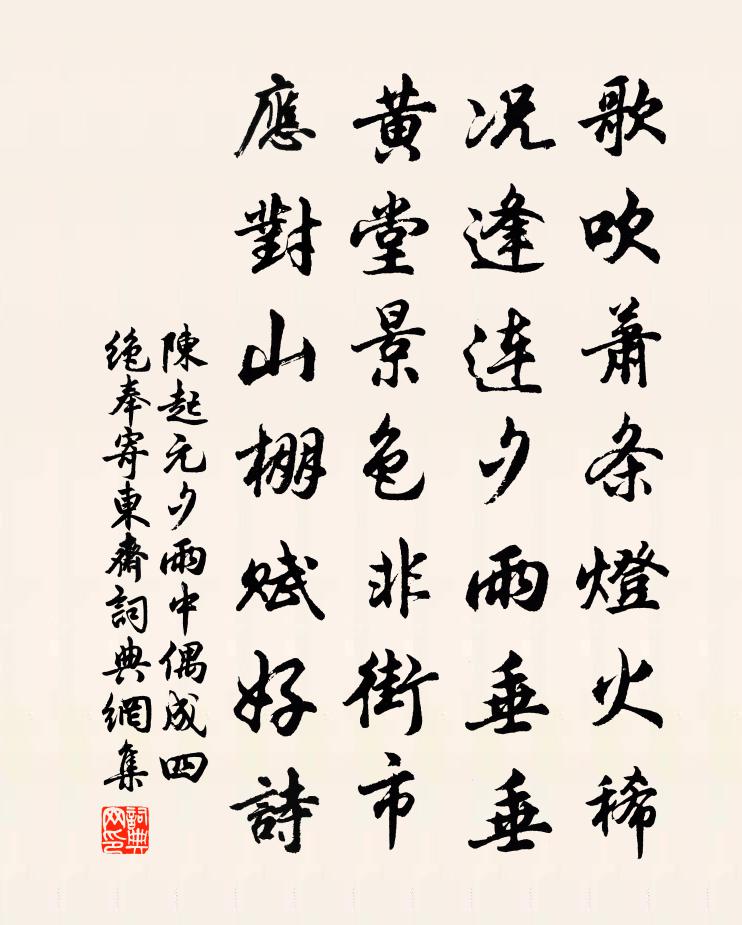 歌吹蕭条燈火稀
况逢連夕雨垂垂
黄堂景色非街市
應對山棚賦好詩
陳起元夕雨中偶成四
絶奉寄東齋詞典網集
詞典网印